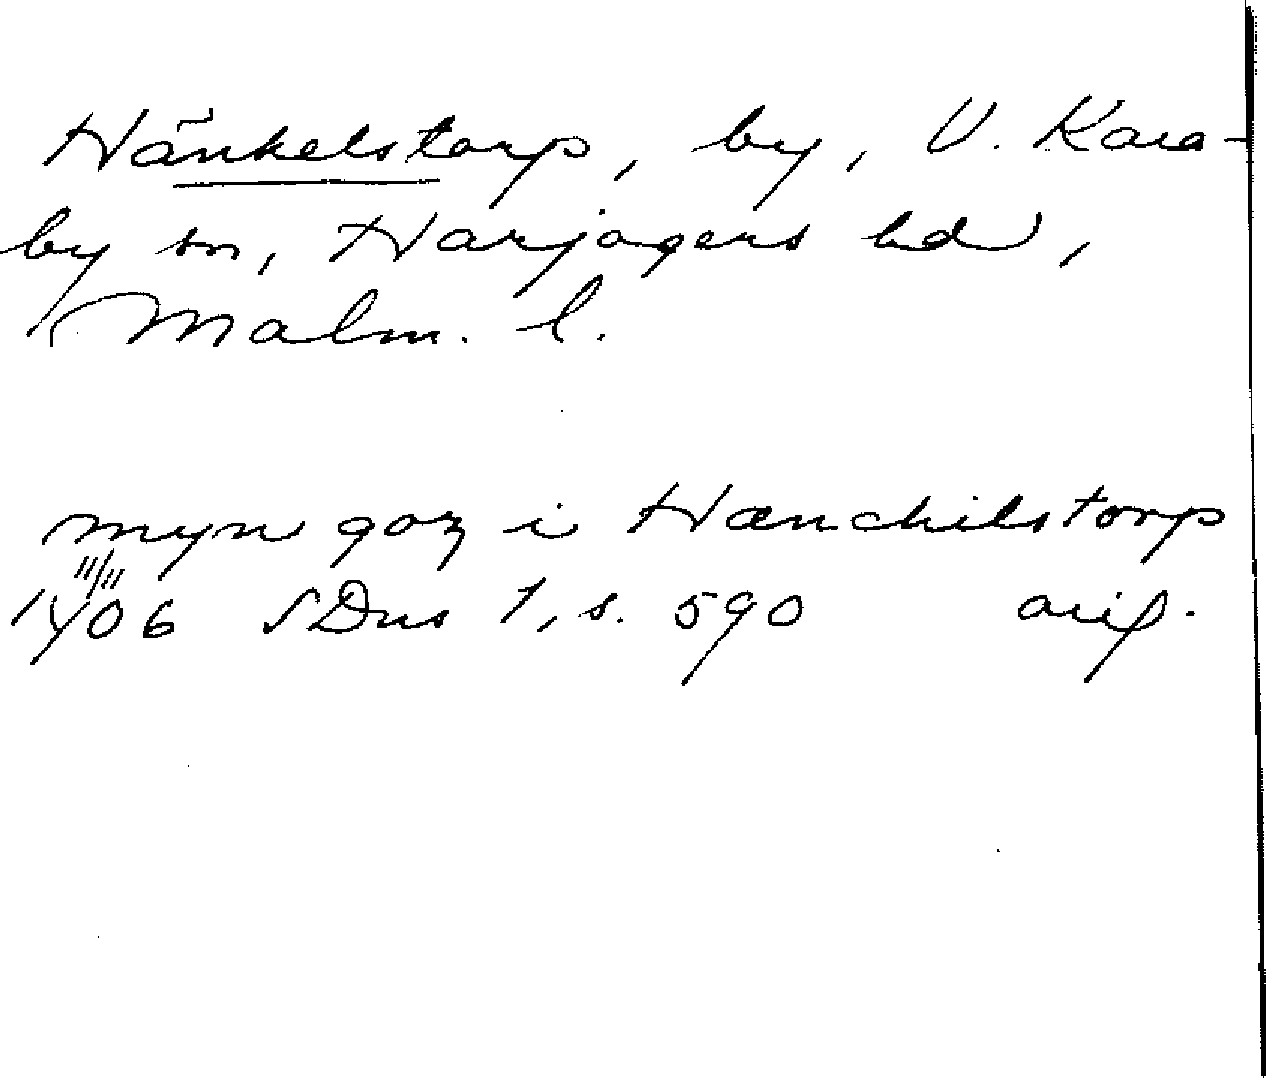 Hänkelstorp, by, V. Kara-
by sn, Harjagers hd,
Malm. l.
myn goz i Hænchilstorp
11/11
1406 SDns 1, s. 590 orig.